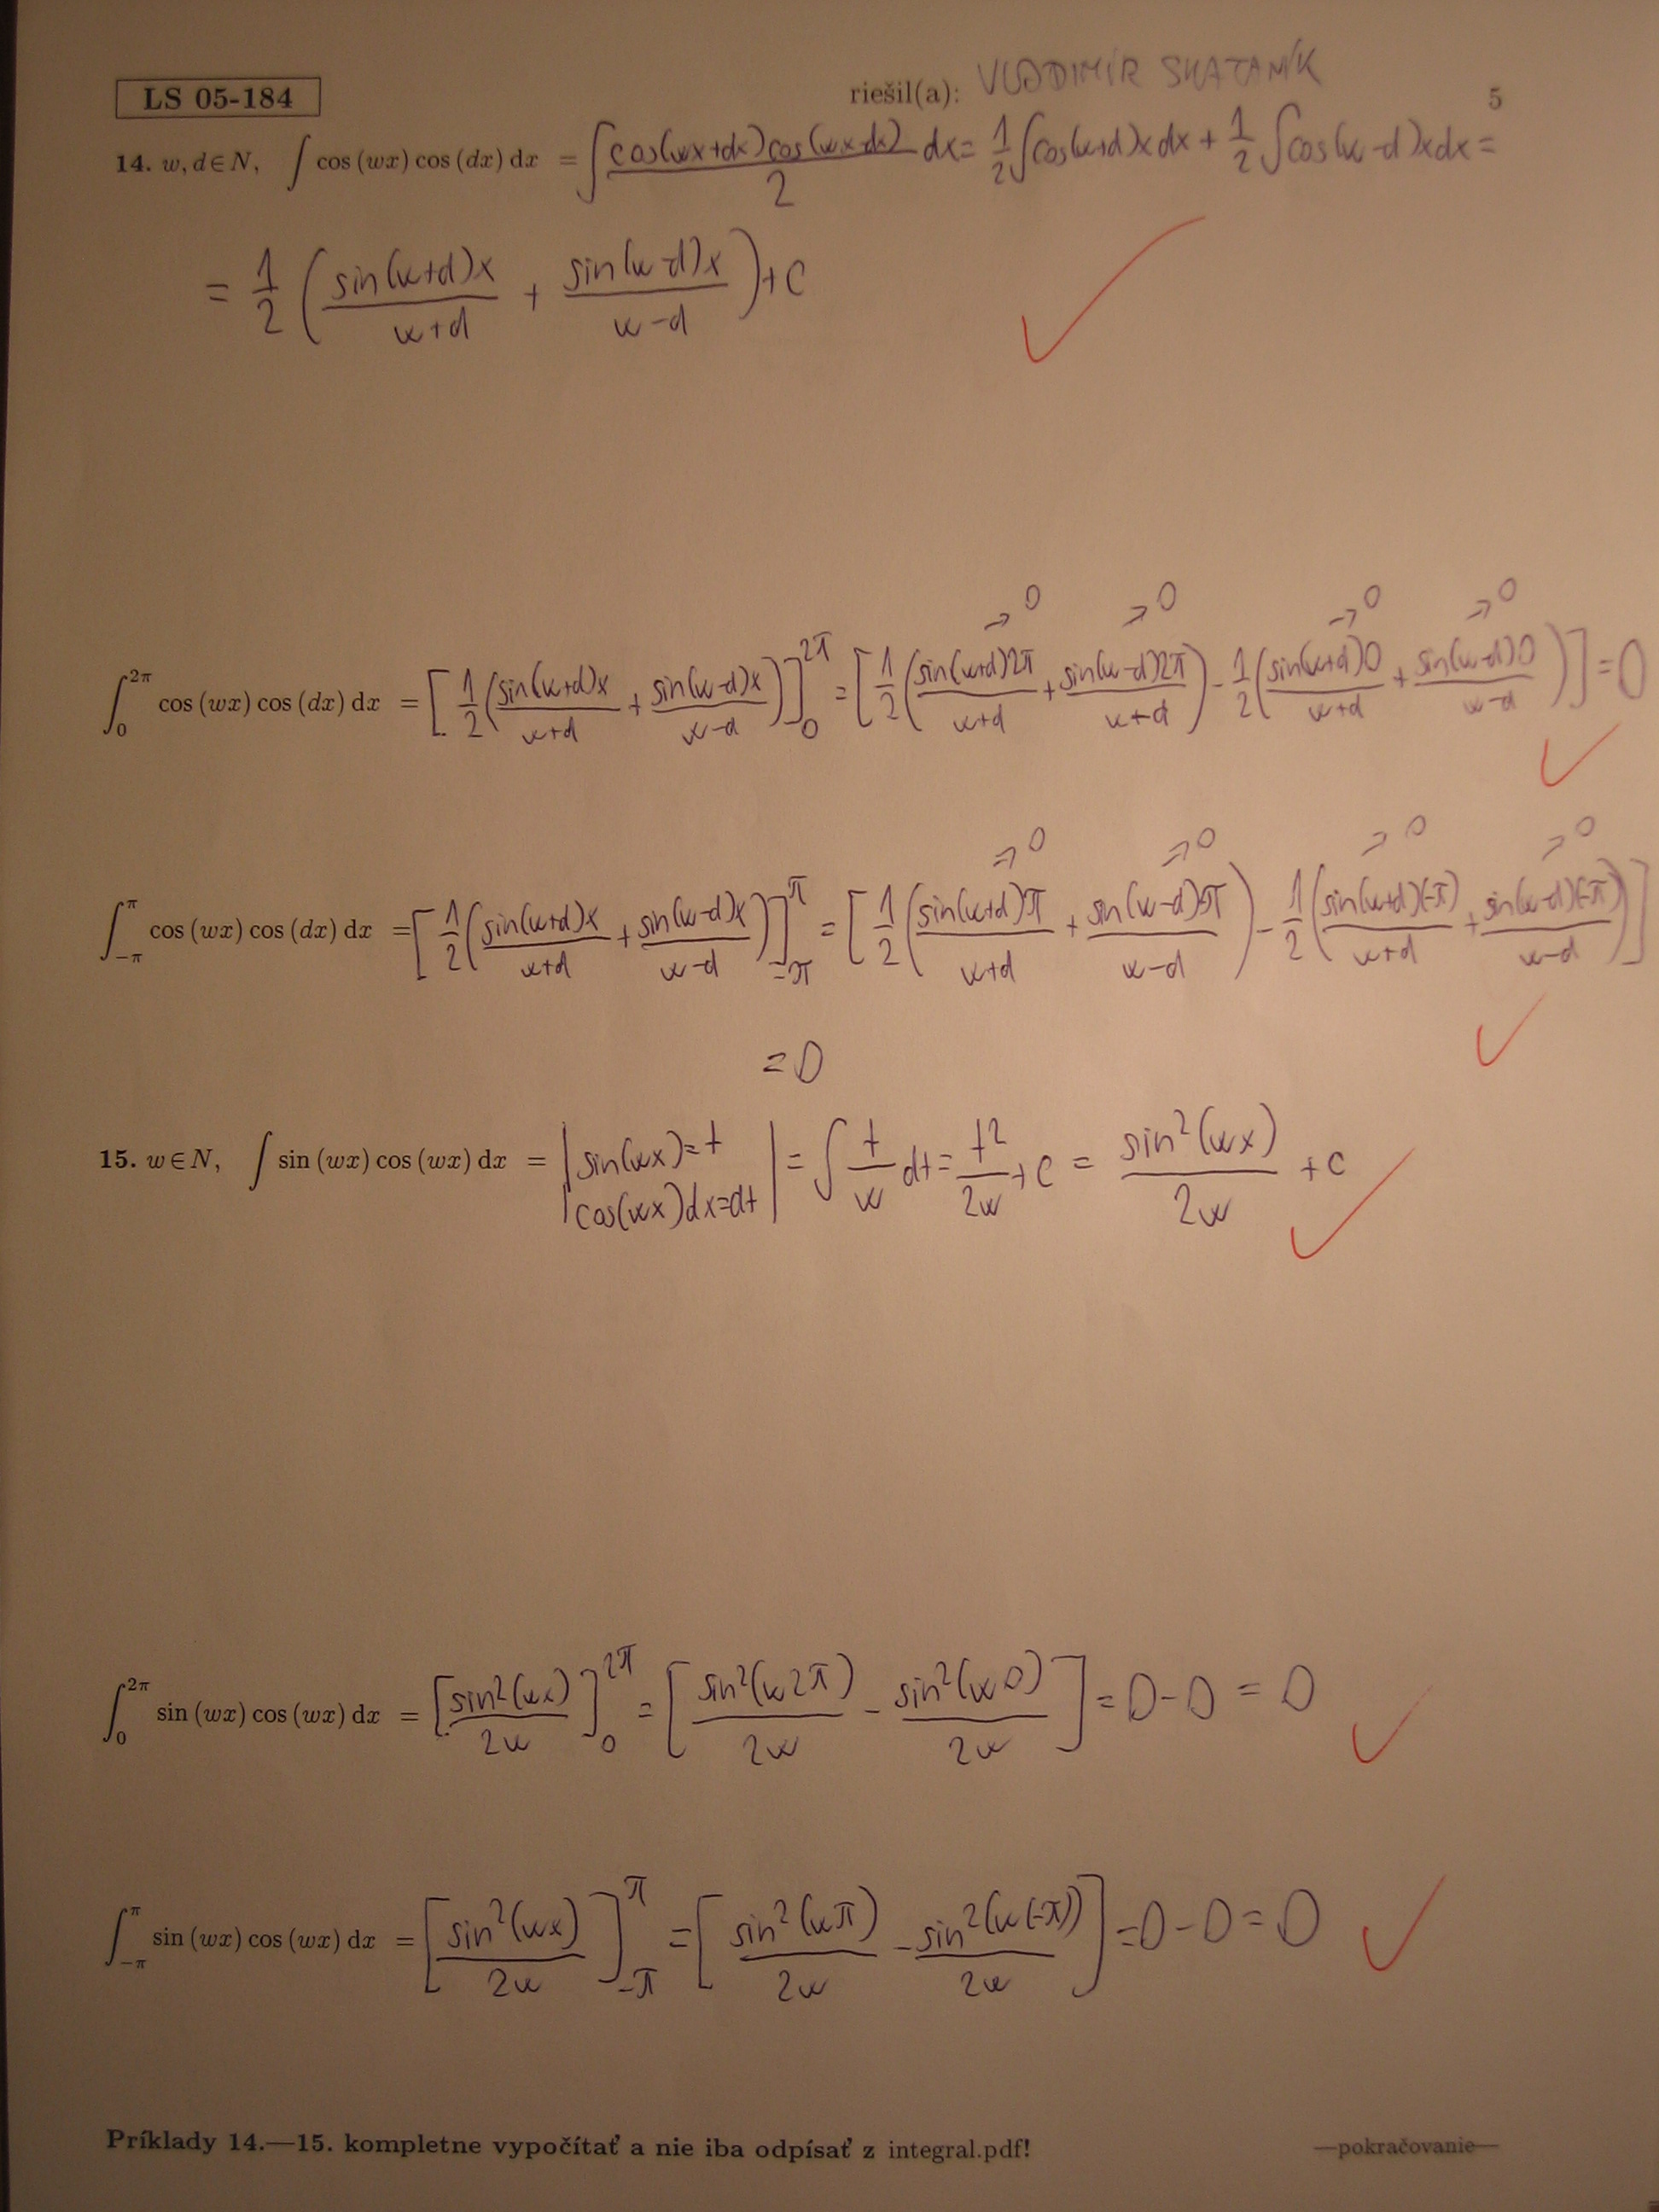 LS 05-184 riešil(a): VLADIMÍR SKATANÍK 5
14. w, d ∈ N, ∫ cos (wx) cos (dx) dx = ∫ cos(wx+dx) cos(wx-dx) / 2 dx = 1/2 ∫ cos(w+d)x dx + 1/2 ∫ cos(w-d)x dx =
= 1/2 ( sin(w+d)x / w+d + sin(w-d)x / w-d ) + c
→ 0 → 0 → 0 → 0
∫₀^2π cos (wx) cos (dx) dx = [ 1/2 ( sin(w+d)x / w+d + sin(w-d)x / w-d ) ]₀^2π = [ 1/2 ( sin(w+d)2π / w+d + sin(w-d)2π / w+d ) - 1/2 ( sin(w+d)0 / w+d + sin(w-d)0 / w-d ) ] = 0
⇒ 0 ⇒ 0 → 0 → 0
∫_-π^π cos (wx) cos (dx) dx = [ 1/2 ( sin(w+d)x / w+d + sin(w-d)x / w-d ) ]_-π^π = [ 1/2 ( sin(w+d)π / w+d + sin(w-d)π / w-d ) - 1/2 ( sin(w+d)(-π) / w+d + sin(w-d)(-π) / w-d ) ]
= 0
15. w ∈ N, ∫ sin (wx) cos (wx) dx = | sin(wx) = t | = ∫ t / w dt = t² / 2w + c = sin²(wx) / 2w + c
| cos(wx)dx = dt |
∫₀^2π sin (wx) cos (wx) dx = [ sin²(wx) / 2w ]₀^2π = [ sin²(w2π) / 2w - sin²(w0) / 2w ] = 0 - 0 = 0
∫_-π^π sin (wx) cos (wx) dx = [ sin²(wx) / 2w ]_-π^π = [ sin²(wπ) / 2w - sin²(w(-π)) / 2w ] = 0 - 0 = 0
Príklady 14.—15. kompletne vypočítať a nie iba odpísať z integral.pdf! —pokračovanie—